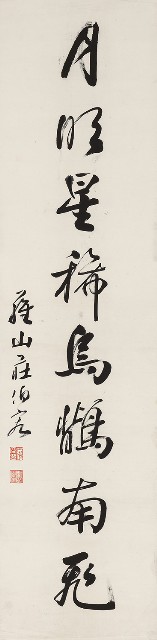 月明星稀烏鵲南飛
蘿山莊伯容